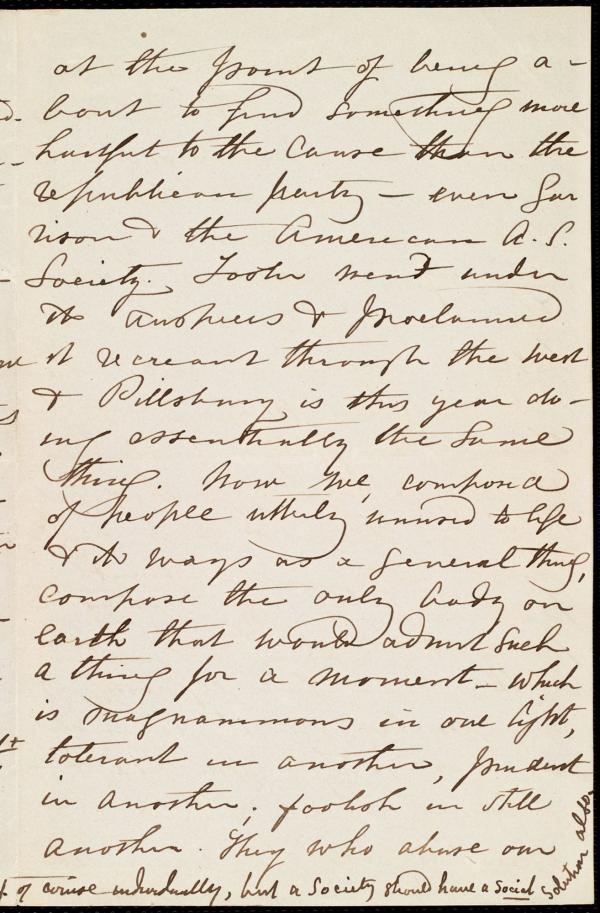 at the point of being a-
bout to find something more
hurtful to the cause than the
republican party — even Gar
rison & the American A. S.
Society. Foster went under
its auspices & proclaimed
it recreant through the west
& Pillsbury is this year do-
ing essentially the same
thing. Now we, composed
of people utterly unused to life
& its ways as a general thing,
compose the only body on
earth that would admit such
a thing for a moment — which
is magnanimous in one light,
tolerant in another, prudent
in another, foolish in still
another. They who abuse our
of course individually, but a Society should have a social solution also.